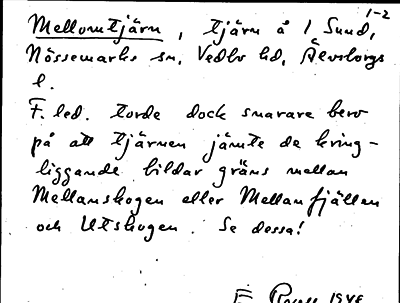 1-2
Mellomtjärn, tjärn å 1 Sund,
Nössemarks sn, Vedbo hd, Älvsborgs
l.
F. led. torde dock snarare bero
på att tjärnen jämte de kring-
liggande bildar gräns mellan
Mellanskogen eller Mellanfjällen
och Utskogen. Se dessa!
E 1948